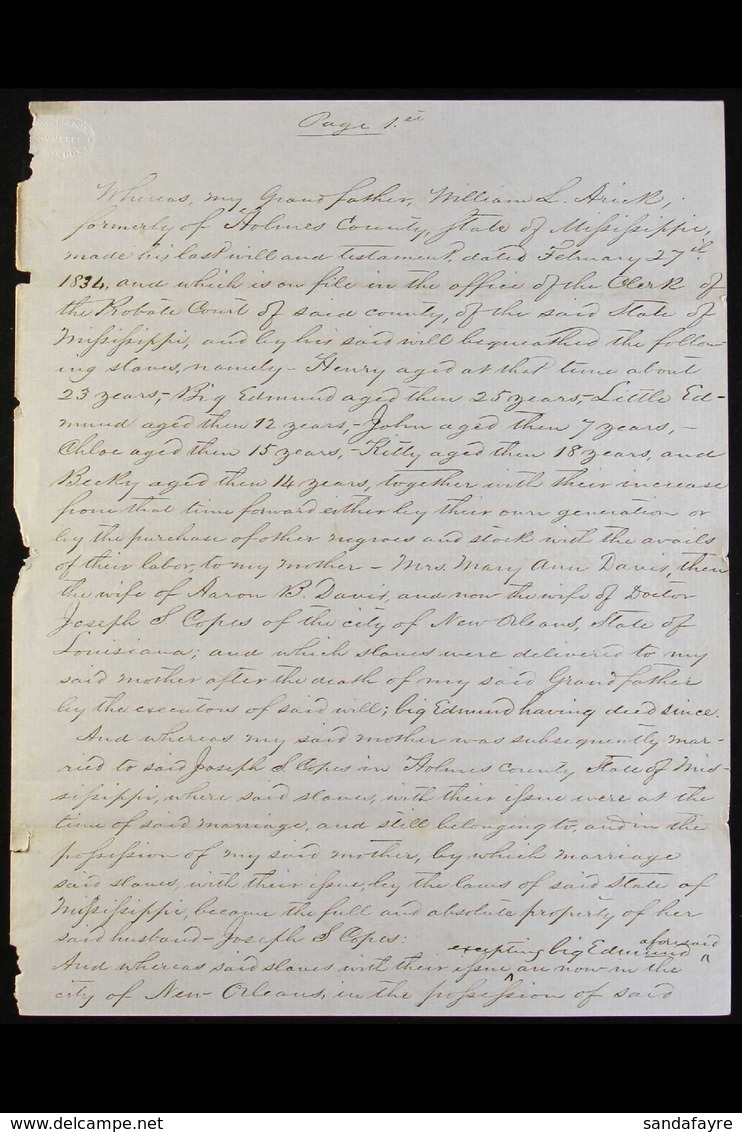 Page 1.st
Whereas, my Grandfather, William L. Arick,
formerly of Holmes County, State of Mississippi,
made his last will and testament, dated February 27th
1834, and which is on file in the office of the Clerk of
the Probate Court of said county, of the said State of
Mississippi, and by his said will bequeathed the follow-
ing slaves, namely - Henry aged at that time about
23 years,- Big Edmund aged then 25 years,- Little Ed-
mund aged then 12 years,- John aged then 7 years, -
Chloe aged then 15 years,- Kitty aged then 18 years, and
Becky aged then 14 years, together with their increase
from that time forward either by their own generation or
by the purchase of other negroes and stock with the avails
of their labor, to my mother - Mrs. Mary Ann Davis, then
the wife of Aaron B. Davis, and now the wife of Doctor
Joseph S Copes of the city of New Orleans, State of
Louisiana; and which slaves were delivered to my
said mother after the death of my said Grandfather
by the executors of said will; big Edmund having died since.
And whereas my said mother was subsequently mar-
ried to said Joseph S Copes in Holmes County State of Mis-
sissippi, where said slaves, with their issue were at the
time of said marriage, and still belonging to, and in the
possession of my said mother, by which marriage
said slaves, with their issue, by the laws of said State of
Mississippi, became the full and absolute property of her
said husband - Joseph S Copes:
excepting big Edmund aforesaid
And whereas said slaves with their issue ^ are now in the
city of New Orleans, in the possession of said
delcampe.net
sandafayre